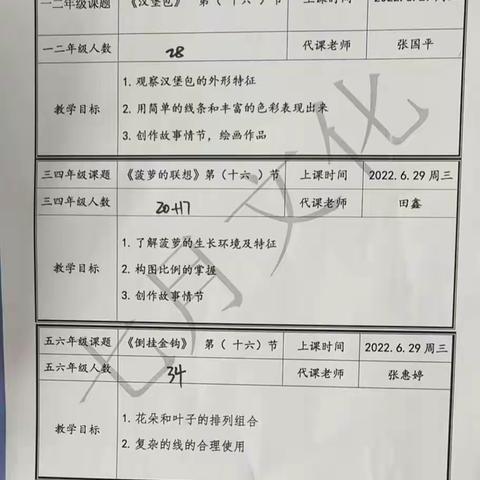 一二年级课题 《汉堡包》 第（十六）节 上课时间
一二年级人数 28 代课老师 张国平
教学目标
1. 观察汉堡包的外形特征
2. 用简单的线条和丰富的色彩表现出来
3. 创作故事情节，绘画作品
三四年级课题 《菠萝的联想》第（十六 ）节 上课时间 2022.6.29 周三
三四年级人数 20+17 代课老师 田鑫
教学目标
1. 了解菠萝的生长环境及特征
2. 构图比例的掌握
3. 创作故事情节
五六年级课题 《倒挂金钩》 第（ 十六）节 上课时间 2022.6.29 周三
五六年级人数 34 代课老师 张惠婷
教学目标
1. 花朵和叶子的排列组合
2. 复杂的线的合理使用
七月文化